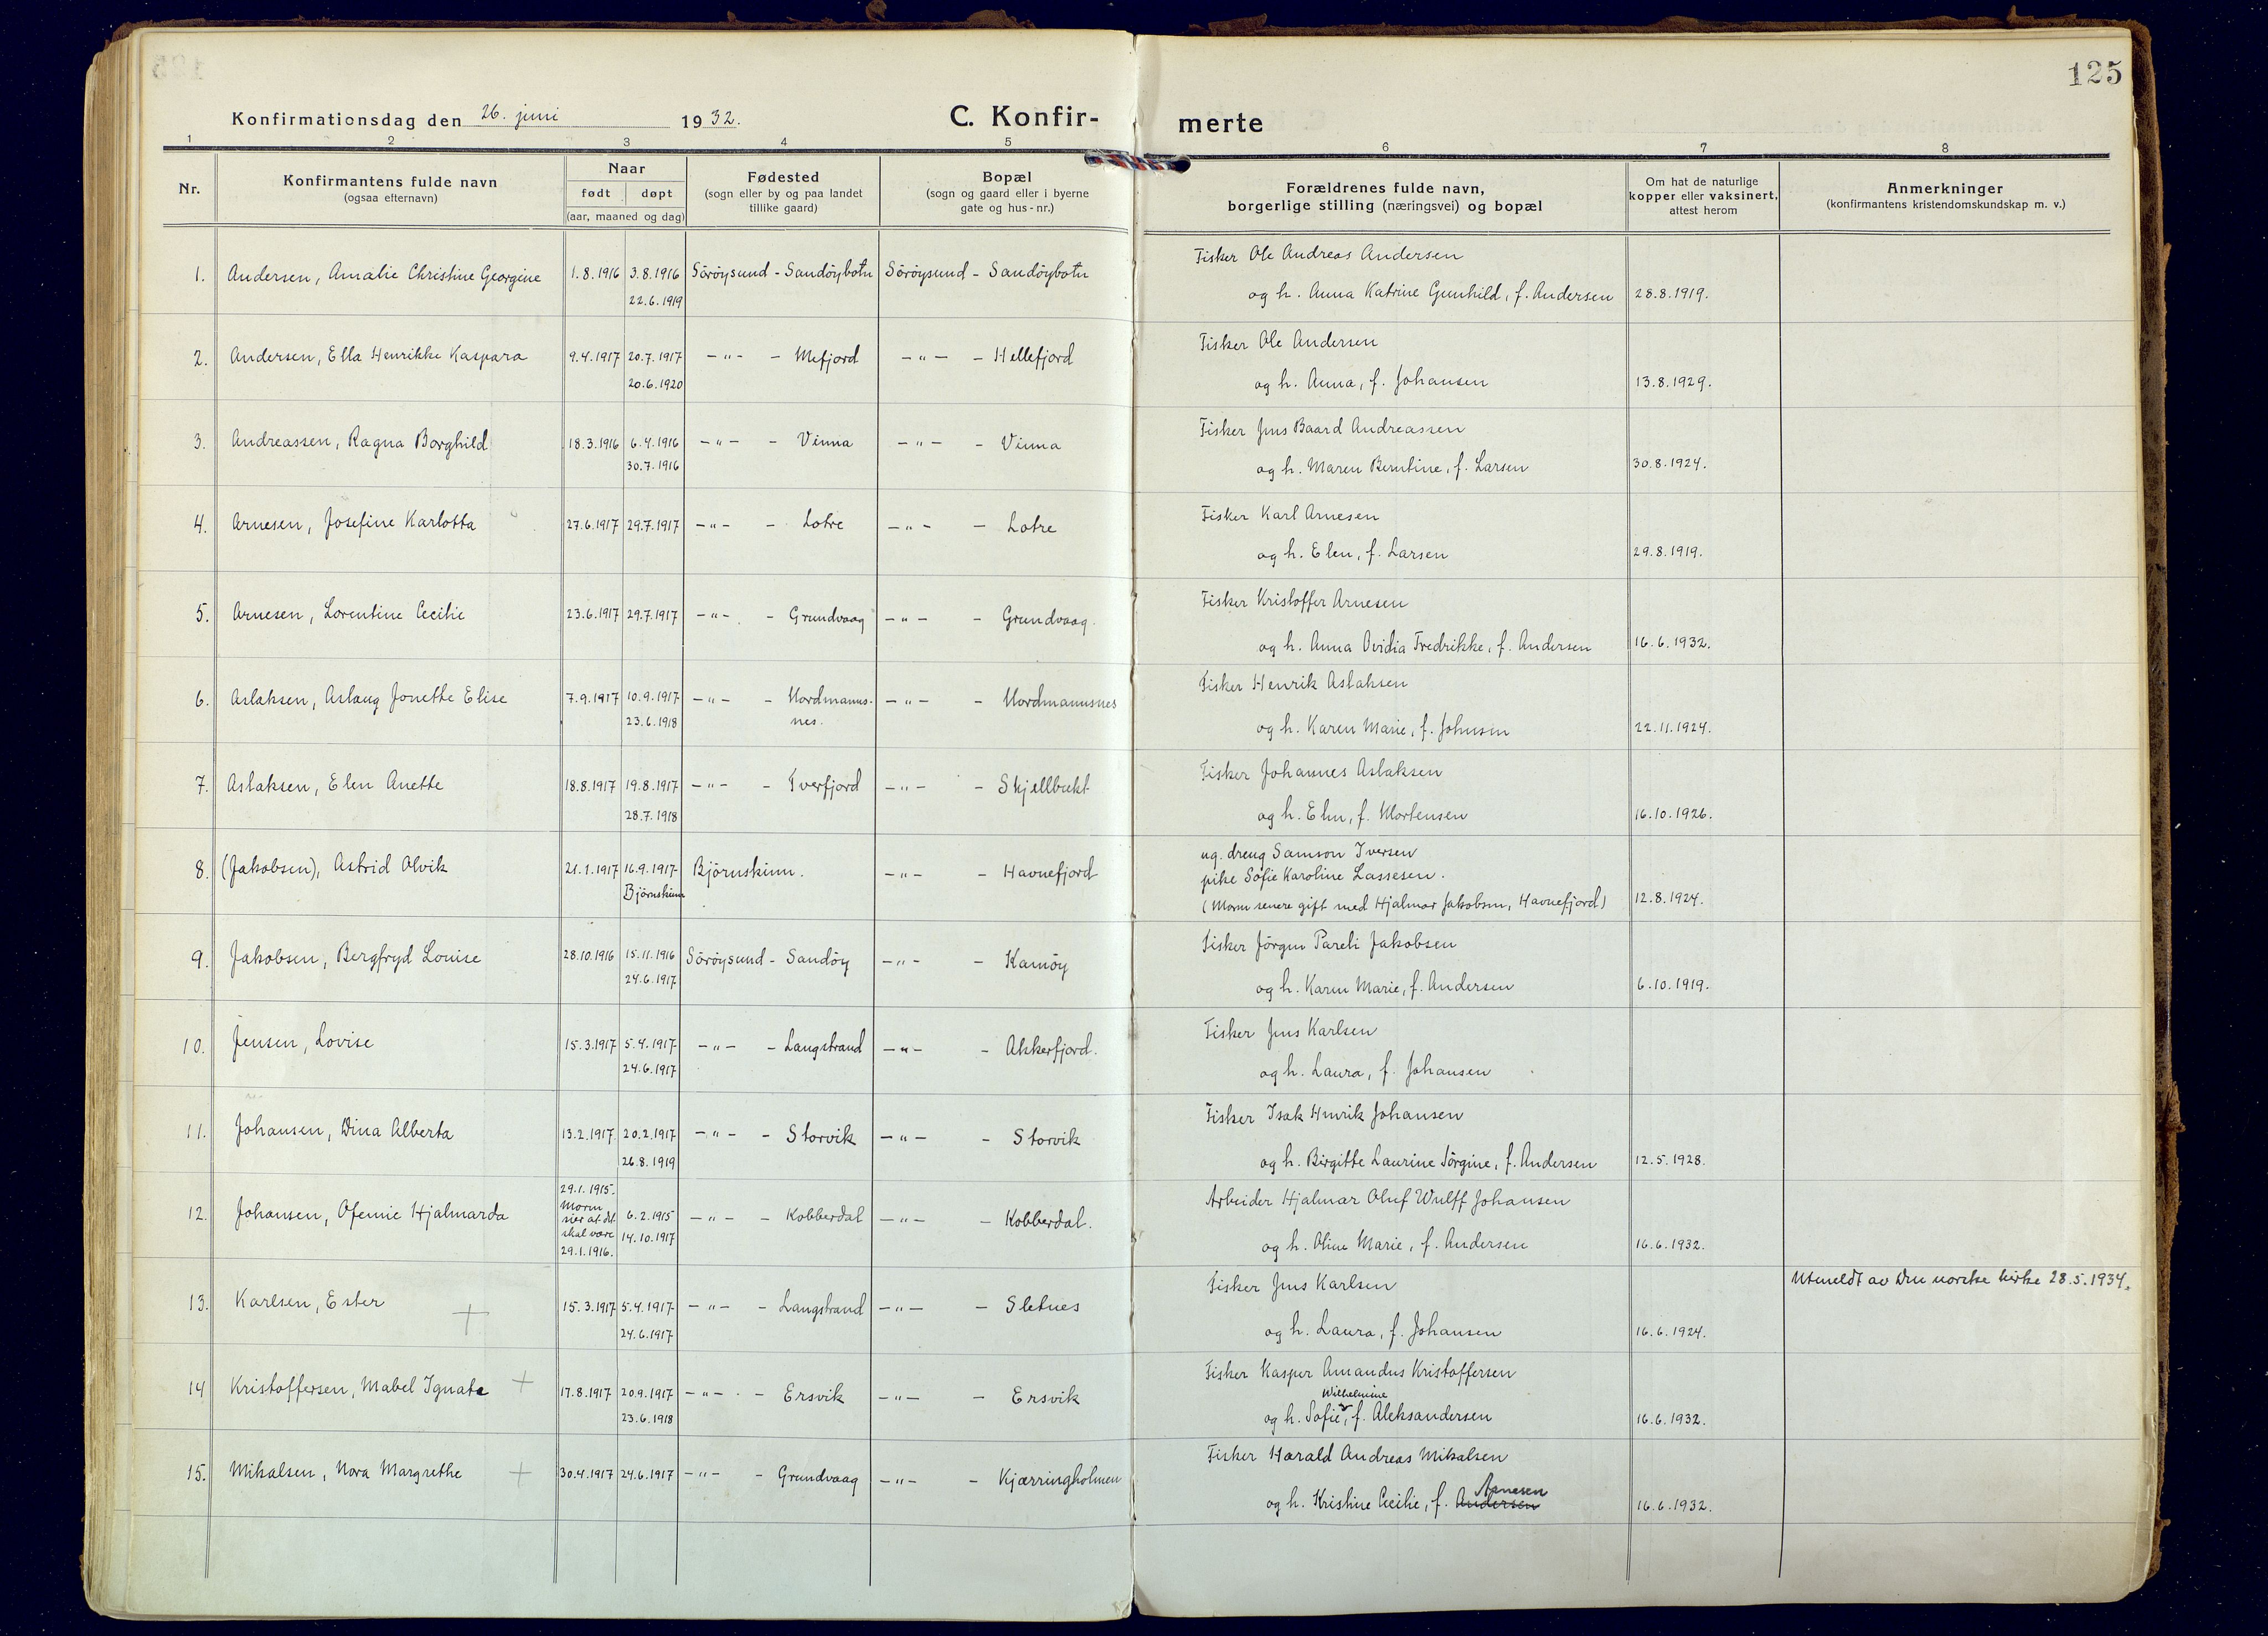 125
Konfirmationsdag den 26. juni 1932.
C. Konfir-
merte
1 2 3 4 5 6 7 8
Nr.
Konfirmantens fulde navn
(ogsaa efternavn)
Naar
født døpt
(aar, maaned og dag)
Fødested
(sogn eller by og paa landet
tillike gaard)
Bopæl
(sogn og gaard eller i byerne
gate og hus-nr.)
Forældrenes fulde navn,
borgerlige stilling (næringsvei) og bopæl
Om hat de naturlige
kopper eller vaksinert,
attest herom
Anmerkninger
(konfirmantens kristendomskundskap m. v.)
Fisker Ole Andreas Andersen
1. Andersen, Amalie Christine Georgine 1.8.1916 3.8.1916 Söröysund - Sandöybotn Söröysund - Sandöybotn
22.6.1919 og h. Anna Katrine Gunhild, f. Andersen 28.8.1919.
Fisker Ole Andersen
2. Andersen, Ella Henrikke Kaspara 9.4.1917 20.7.1917 -"- - Mefjord -"- - Hellefjord
20.6.1920 og h. Anna, f. Johansen 13.8.1929.
Fisker Jens Baard Andreassen
3. Andreassen, Ragna Borghild 18.3.1916 6.4.1916 -"- - Vinna -"- - Vinna
30.7.1916 og h. Maren Berntine, f. Larsen 30.8.1924.
Fisker Karl Arnesen
4. Arnesen, Josefine Karlotta 27.6.1917 29.7.1917 -"- - Lotre -"- - Lotre
og h. Elen, f. Larsen 29.8.1919.
Fisker Kristoffer Arnesen
5. Arnesen, Lorentine Cecilie 23.6.1917 29.7.1917 -"- - Grundvaag -"- - Grundvaag.
og h. Anna Ovidia Fredrikke, f. Andersen 16.6.1932.
Fisker Henrik Aslaksen
6. Aslaksen, Aslaug Jonette Elise 7.9.1917 10.9.1917 -"- - Nordmanns- -"- - Nordmannsnes
23.6.1918 nes. og h. Karen Marie, f. Johnsen 22.11.1924.
Fisker Johannes Aslaksen
7. Aslaksen, Elen Anette 18.8.1917 19.8.1917 -"- - Tverfjord -"- - Skjellbukt
28.7.1918 og h. Elen, f. Mortensen 16.10.1926.
ug. dreng Samson Iversen
8. (Jakobsen), Astrid Alvik 21.1.1917 16.9.1917 Björnskinn. -"- - Havnefjord pike Sofie Karoline Lassesen.
Björnskinn (Moren senere gift med Hjalmar Jakobsen, Havnefjord) 12.8.1924.
Fisker Jörgen Pareli Jakobsen
9. Jakobsen, Bergfryd Louise 28.10.1916 15.11.1916 Söröysund - Sandöy -"- - Kamöy
24.6.1917 og h. Karen Marie, f. Andersen 6.10.1919.
Fisker Jens Karlsen
10. Jensen, Lovise 15.3.1917 5.4.1917 -"- - Langstrand -"- - Akkerfjord.
24.6.1917 og h. Laura, f. Johansen
Fisker Isak Henrik Johansen
11. Johansen, Dina Alberta 13.2.1917 20.2.1917 -"- - Storvik -"- - Storvik
26.8.1919 og h. Birgitte Laurine Jörgine, f. Andersen 12.5.1928.
29.1.1915. Arbeider Hjalmar Oluf Wulff Johansen
Moren
12. Johansen, Ofenie Hjalmarda sier at det 6.2.1915 -"- - Kobberdal -"- - Kobberdal.
skal være 14.10.1917
29.1.1916. og h. Oline Marie, f. Andersen 16.6.1932.
Fisker Jens Karlsen Utmeldt av Den norske kirke 28.5.1934.
13. Karlsen, Ester + 15.3.1917 5.4.1917 -"- - Langstrand -"- - Sletnes
24.6.1917 og h. Laura, f. Johansen 16.6.1924.
Fisker Kasper Amandus Kristoffersen
14 Kristoffersen, Mabel Ignate + 17.8.1917 20.9.1917 -"- - Ersvik -"- - Ersvik
Wilhelmine
23.6.1918 og h. Sofie, f. Aleksandersen 16.6.1932.
Fisker Harald Andreas Mikalsen
15. Mikalsen, Nora Margrethe + 30.4.1917 24.6.1917 -"- - Grundvaag -"- - Kjærringholmen
Arnesen
og h. Kristine Cecilie, f. Andersen 16.6.1932.